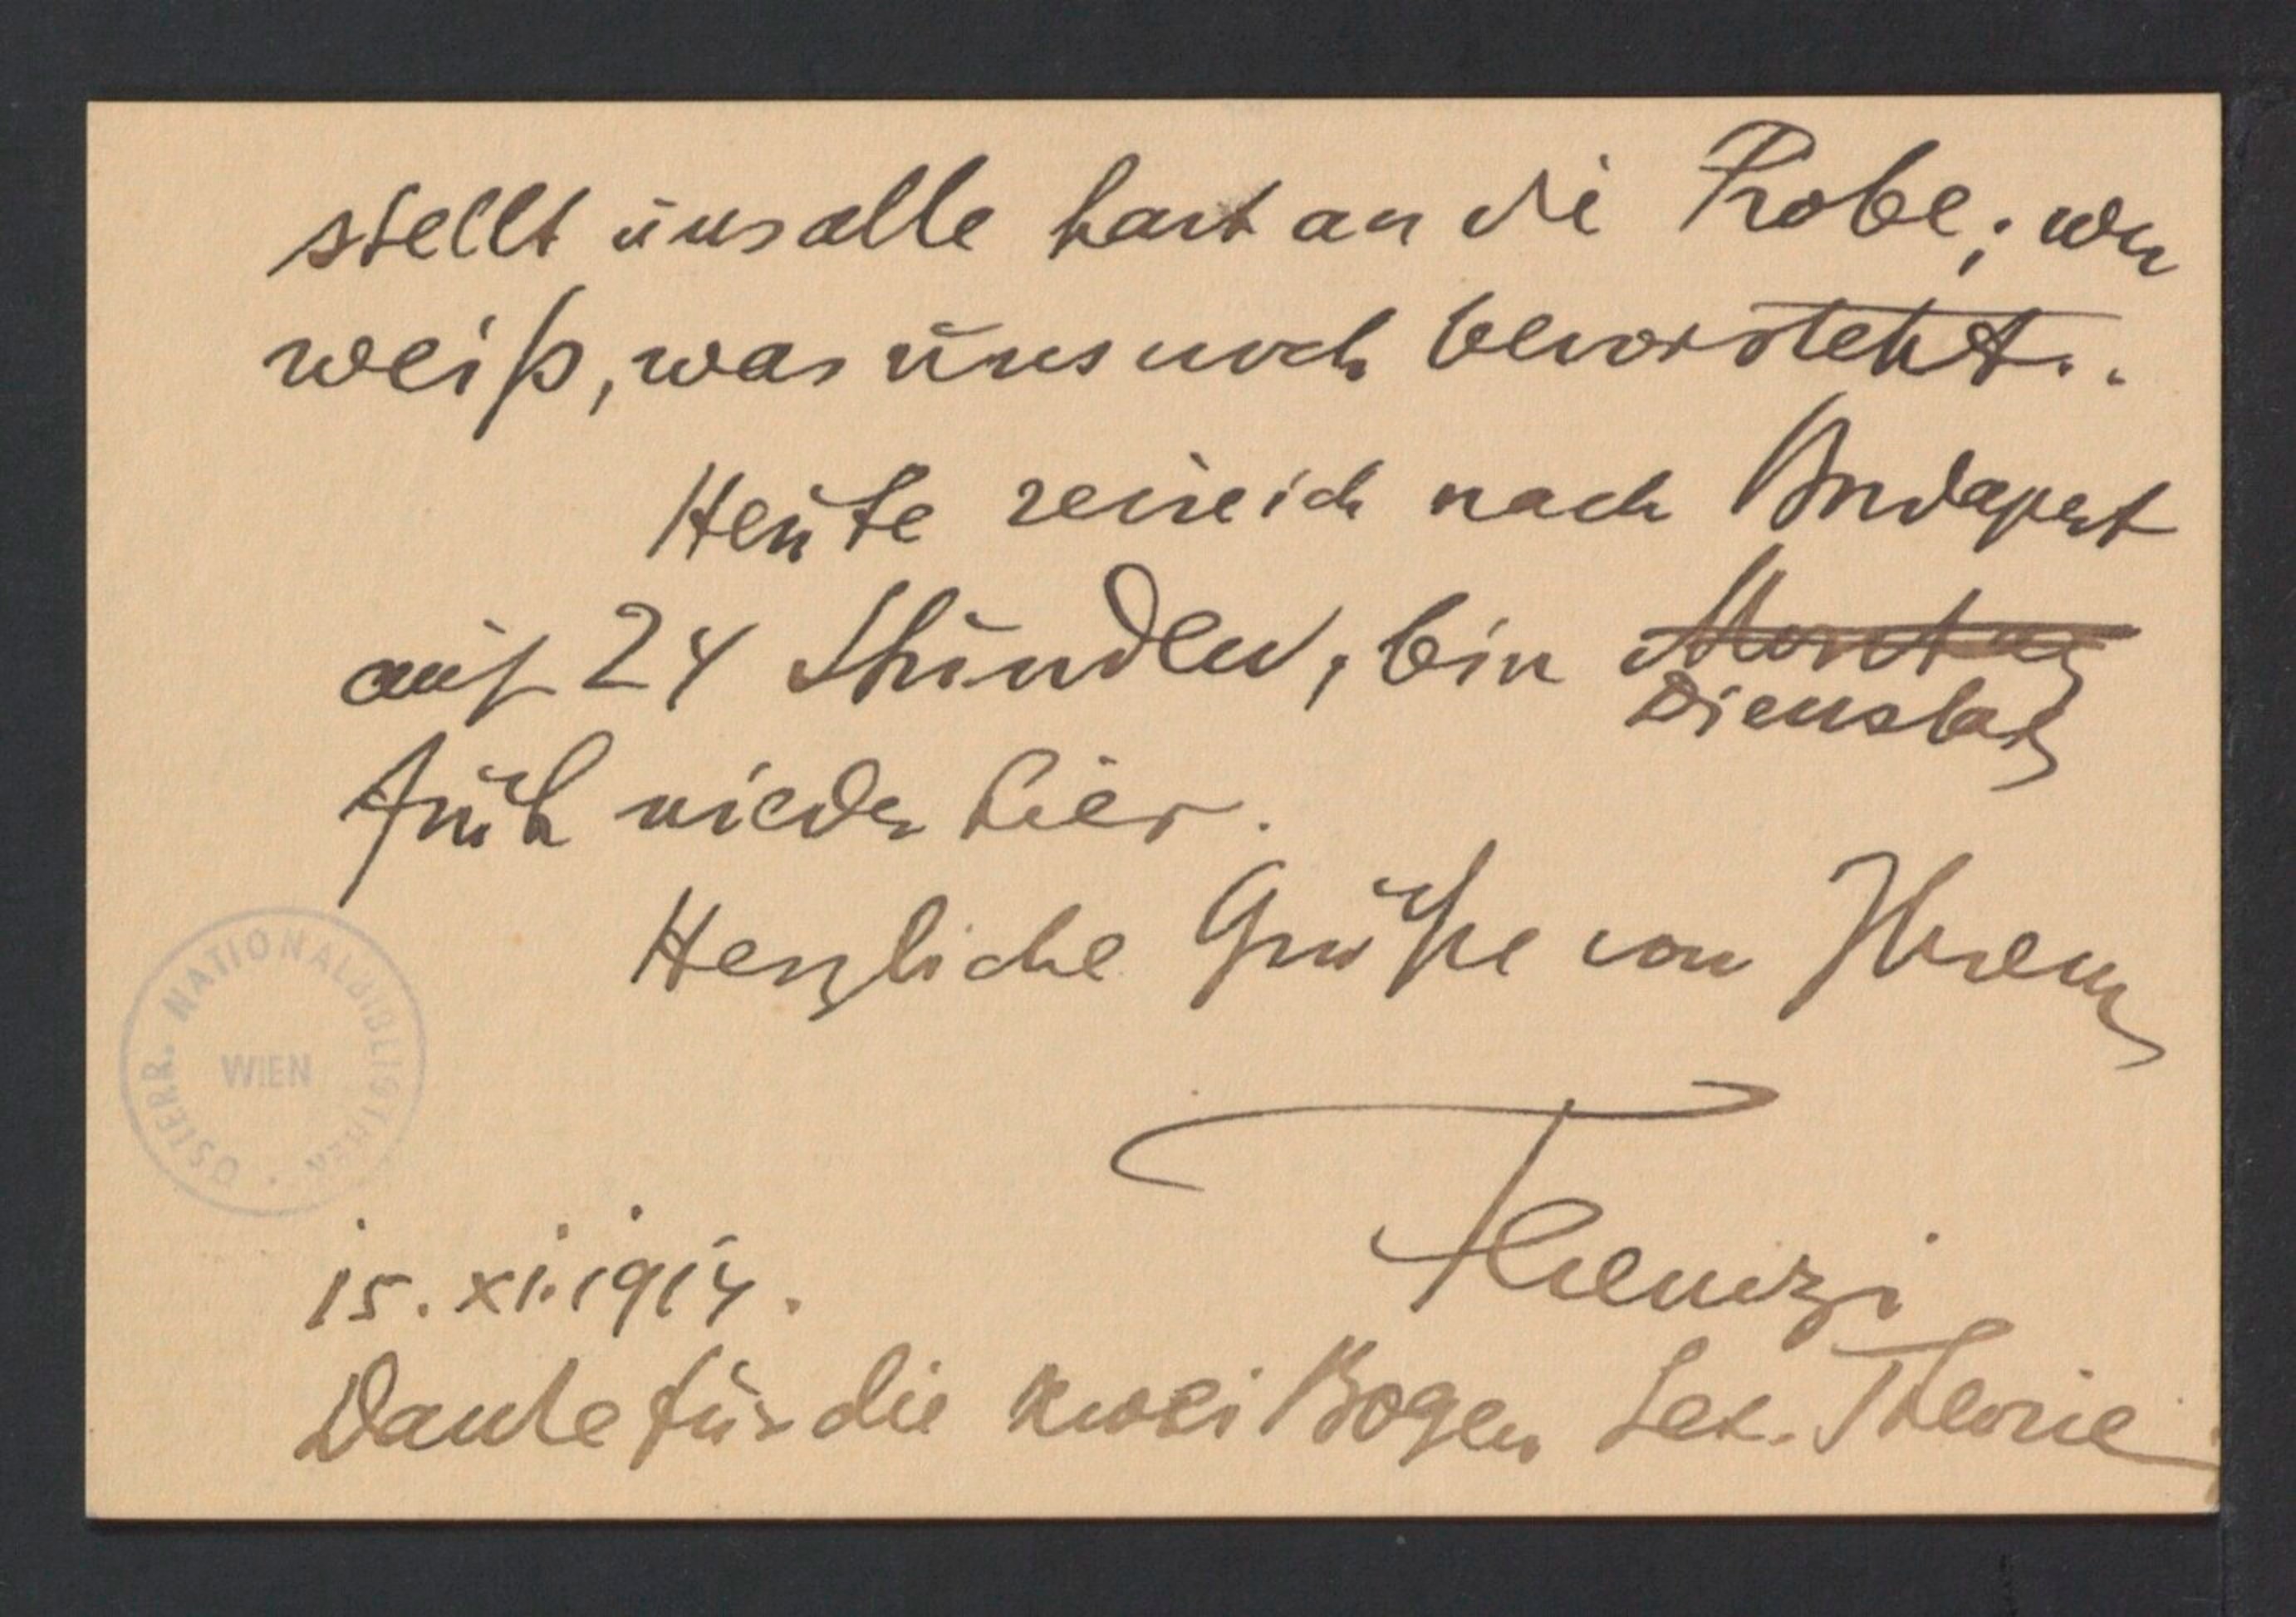 stellt uns alle hart an die Probe; wer
weiß, was uns noch bevorsteht..
Heute reise ich nach Budapest
auf 24 Stunden, bin Montag
Dienstag
früh wieder hier.
Herzliche Grüße von Ihrem
ÖSTERR. NATIONALBIBLIOTHEK
WIEN
Ferenczi
15. XI. 1914.
Danke für die zwei Bogen Sex. Theorie